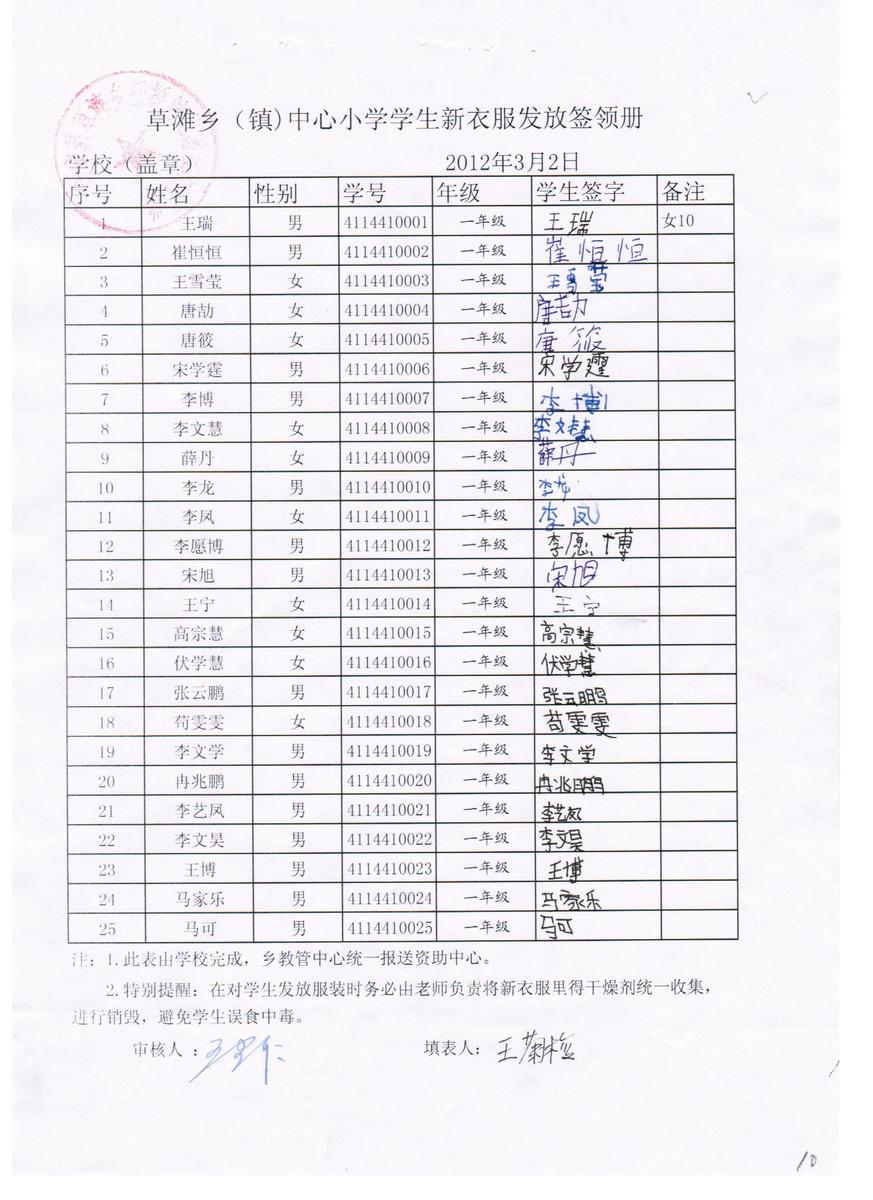 草滩乡（镇)中心小学学生新衣服发放签领册
学校（盖章） 2012年3月2日
序号 姓名 性别 学号 年级 学生签字 备注
1 王瑞 男 4114410001 一年级 王瑞 女10
2 崔恒恒 男 4114410002 一年级 崔恒恒
3 王雪莹 女 4114410003 一年级 王雪莹
4 唐劼 女 4114410004 一年级 唐劼
5 唐筱 女 4114410005 一年级 唐筱
6 宋学霆 男 4114410006 一年级 宋学霆
7 李博 男 4114410007 一年级 李博
8 李文慧 女 4114410008 一年级 李文慧
9 薛丹 女 4114410009 一年级 薛丹
10 李龙 男 4114410010 一年级 李龙
11 李凤 女 4114410011 一年级 李凤
12 李愿博 男 4114410012 一年级 李愿博
13 宋旭 男 4114410013 一年级 宋旭
14 王宁 女 4114410014 一年级 王宁
15 高宗慧 女 4114410015 一年级 高宗慧
16 伏学慧 女 4114410016 一年级 伏学慧
17 张云鹏 男 4114410017 一年级 张云鹏
18 苟雯雯 女 4114410018 一年级 苟雯雯
19 李文学 男 4114410019 一年级 李文学
20 冉兆鹏 男 4114410020 一年级 冉兆鹏
21 李艺凤 男 4114410021 一年级 李艺凤
22 李文昊 男 4114410022 一年级 李文昊
23 王博 男 4114410023 一年级 王博
24 马家乐 男 4114410024 一年级 马家乐
25 马可 男 4114410025 一年级 马可
注：1.此表由学校完成，乡教管中心统一报送资助中心。
2.特别提醒：在对学生发放服装时务必由老师负责将新衣服里得干燥剂统一收集，
进行销毁，避免学生误食中毒。
审核人： 填表人：
10